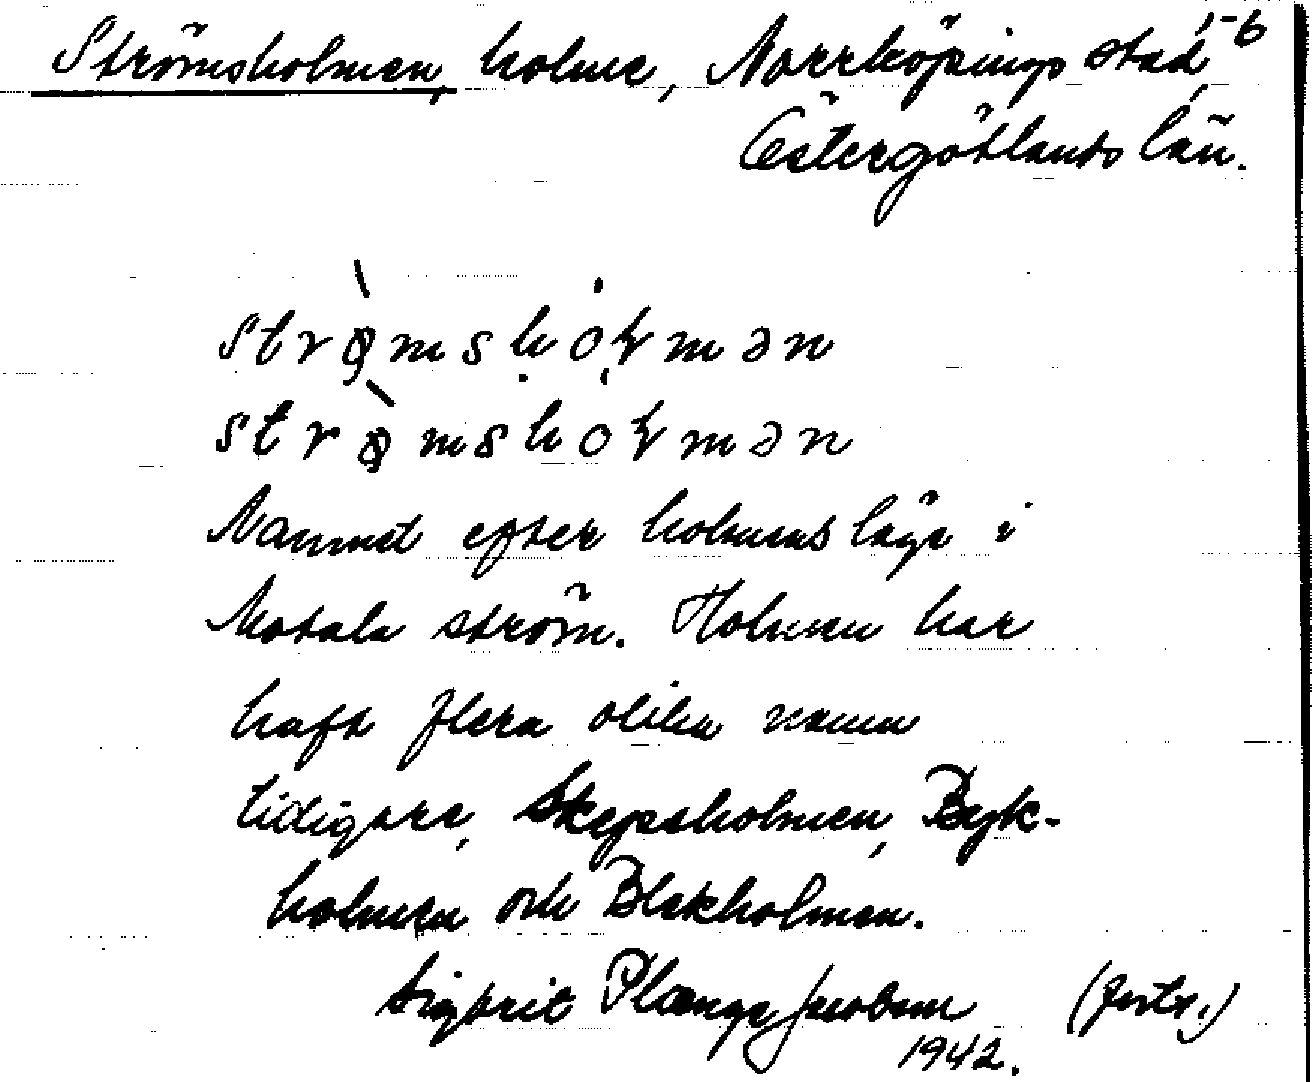 1-6
Strömsholmen, holme, Norrköpings stad,
Östergötlands län.
strømshoɫmən
strømshoɫmən
Namnet efter holmens läge i
Motala ström. Holmen har
haft flera olika namn
tidigare, Skepsholmen, Byk-
holmen och Blekholmen.
Sigbrit Plænge Jacobson (forts.)
1942.